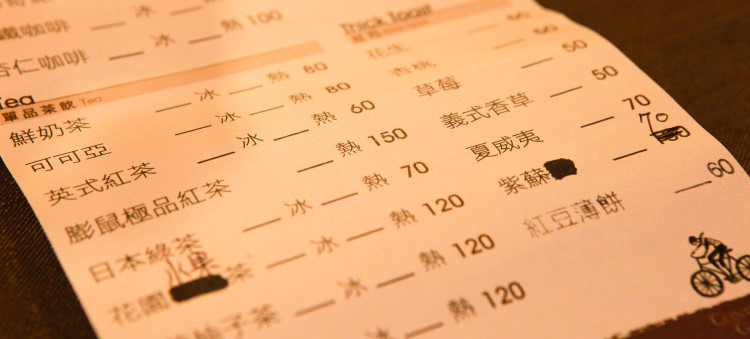 冰
咖啡 冰
杏仁咖啡 冰 熱 100
Tea
單品茶飲 Tea
鮮奶茶 冰 熱 80
可可亞 冰 熱 80
英式紅茶 冰 熱 60
膨鼠極品紅茶 熱 150
日本綠茶 冰 熱 70
花園水果茶 冰 熱 120
柚子茶 冰 熱 120
冰 熱 120
Thick Toast
花生 60
杏桃
草莓 50
義式香草 50
夏威夷 70
紫蘇 70
紅豆薄餅 60